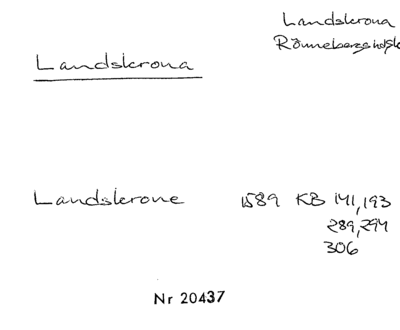 Landskrona
Rönnebergs hd, Sk
Landskrona
Landskrone 1589 KB 141, 193
289, 294
306
Nr 20437